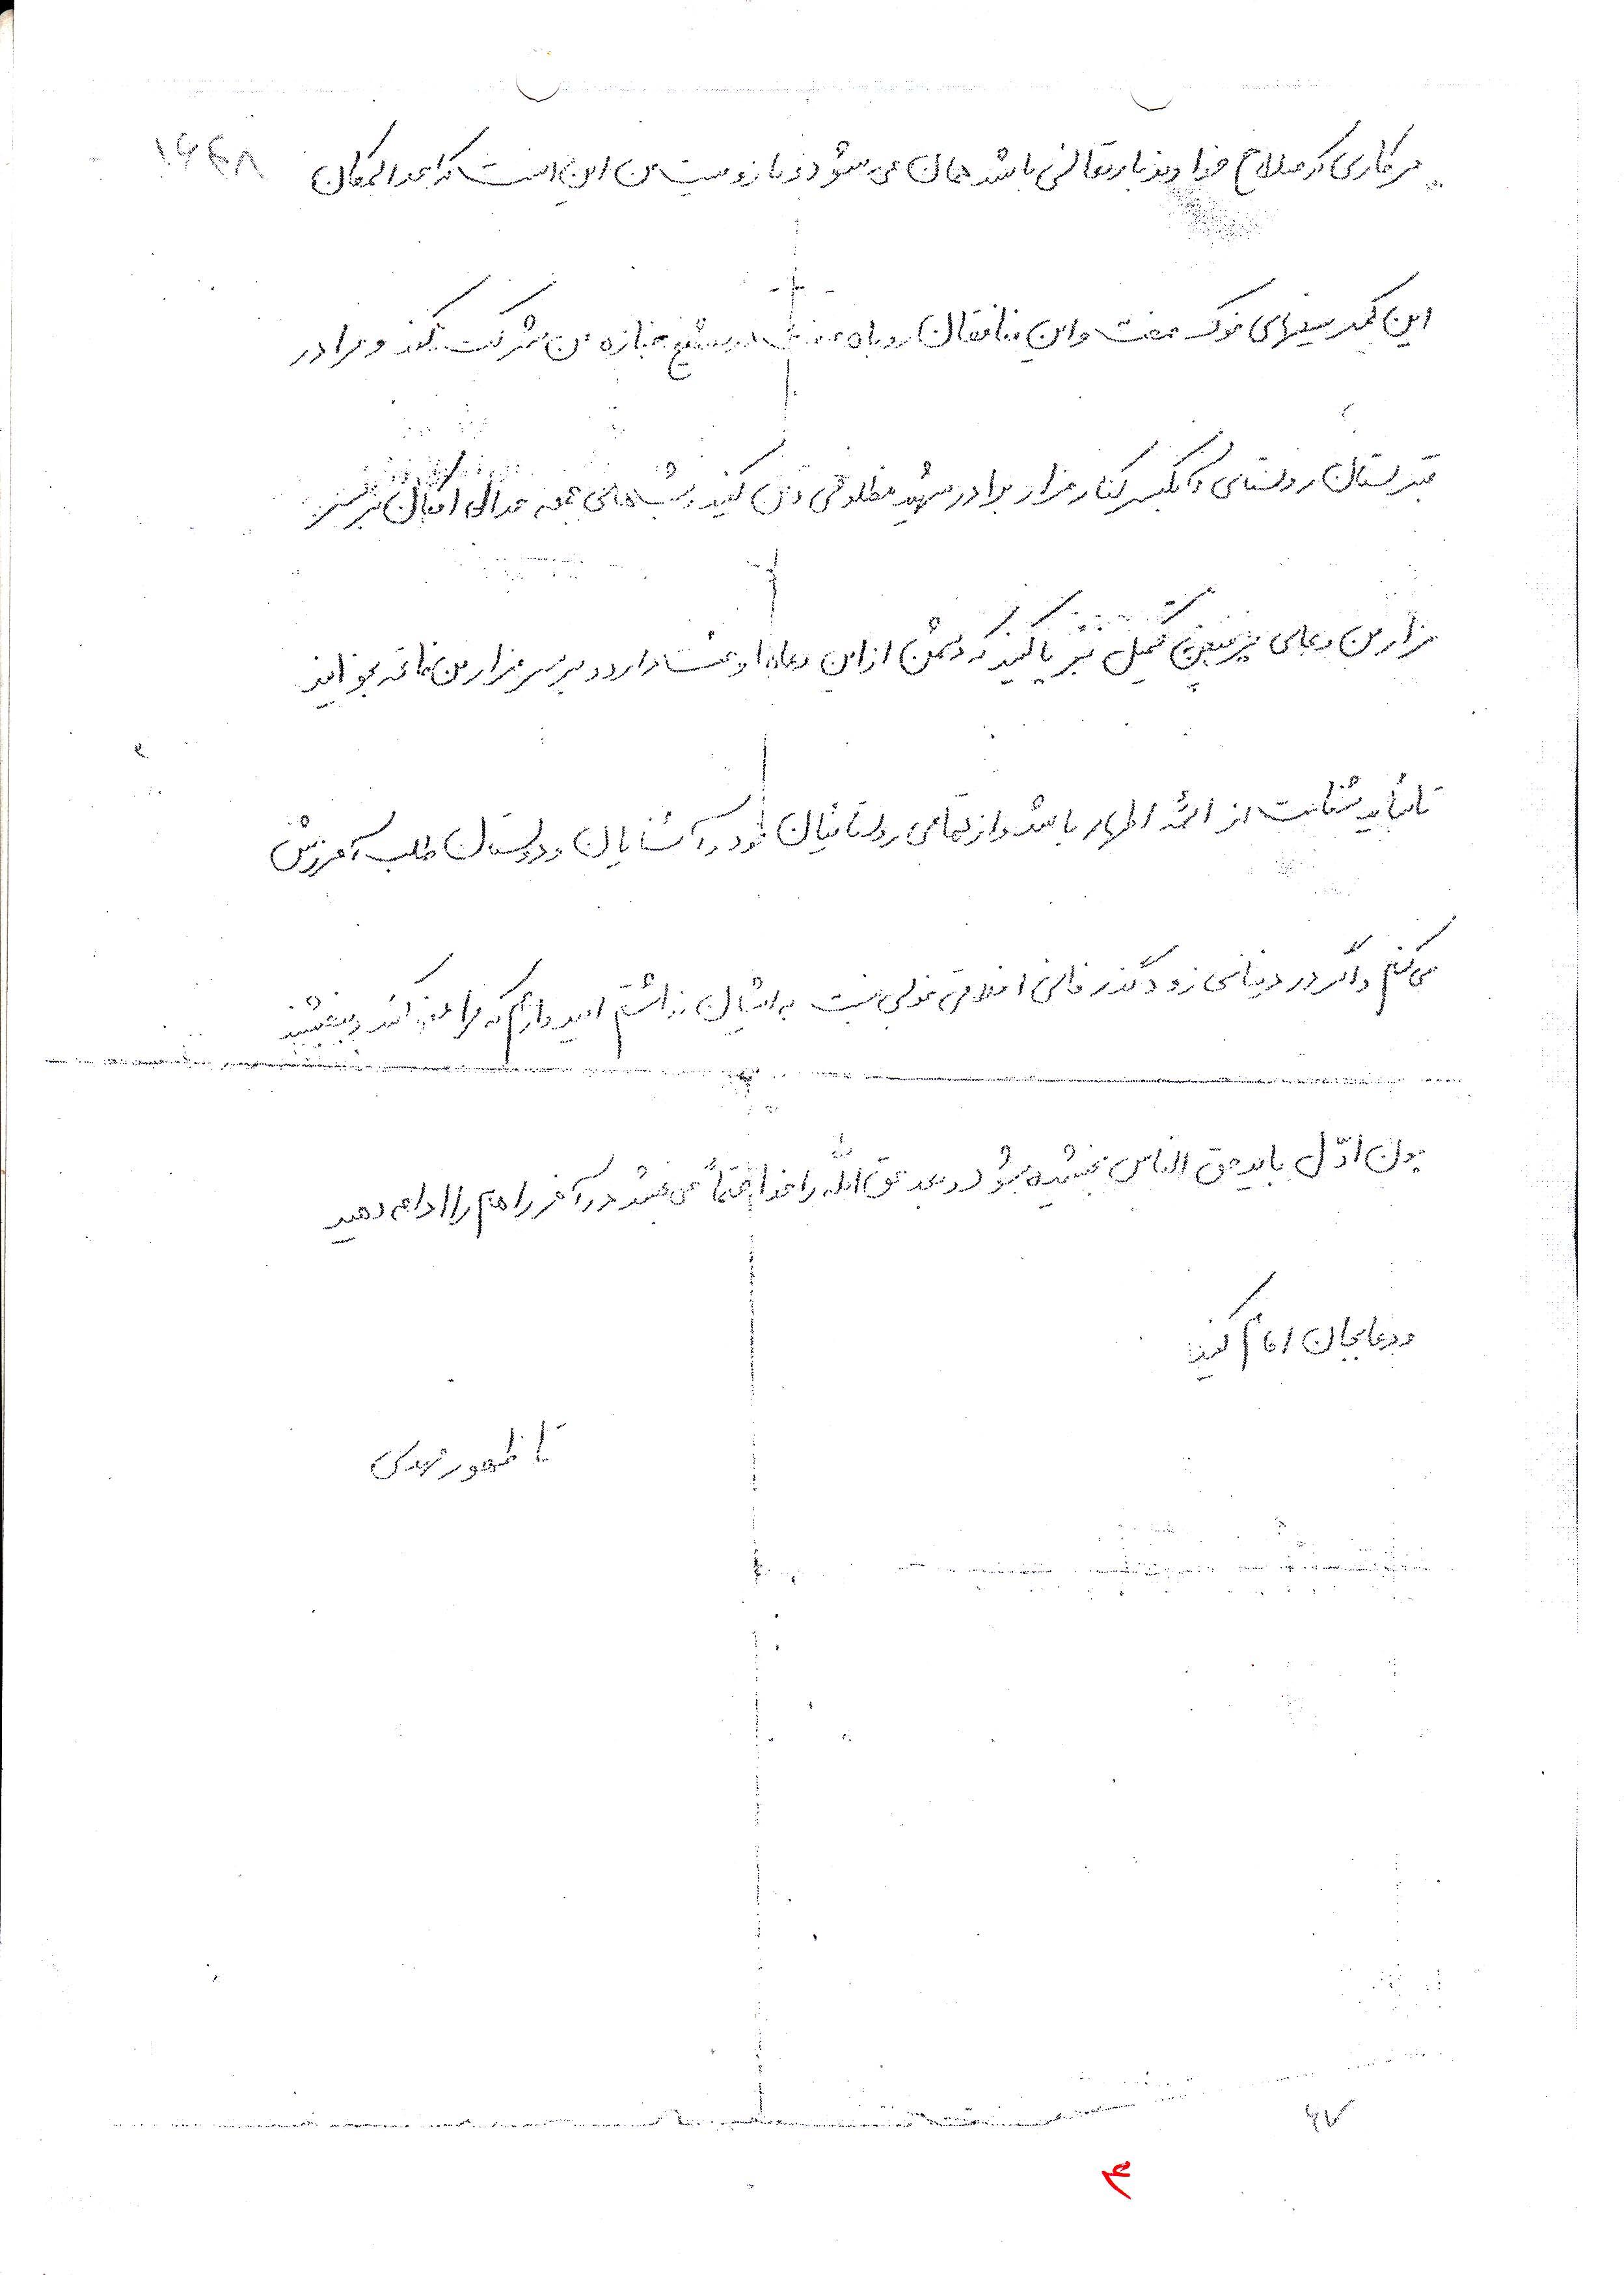 ۱۶۴۸
هر کاری که صلاح خداوند باریتعالی باشد همان می شود و باز وصیت من این است که حد المکان
این کمدیسینهای خوک صفت و این منافقان روباه صفت در تشییع جنازه من شرکت نکنند و مرا در
قبرستان روستای کنار مزار برادر شهید مظلومی دفن کنید و شبهای جمعه حدالی امکان بر سر
مزار من دعای پر فیض کمیل بر پا کنید که دشمن از این دعاها وحشت دارد و بر سر مزار من فاتحه بخوانید
تا شاید شفاعت از ائمه اطهار باشد و از تمامی روستائیان خود و آشنایان و دوستان طلب آمرزش
می کنم و اگر در دنیای زودگذر فانی اخلاق خوبی نسبت به ایشان نداشتم امیدوارم که مرا عفو کنند و ببخشند
چون اوّل باید حق الناس بخشیده بشود و بعد حق الله را خدا حتماً می بخشد در آخر راهم را ادامه دهید
و دعا بجان امام کنید
تا ظهور مهدی
۶۷
۴